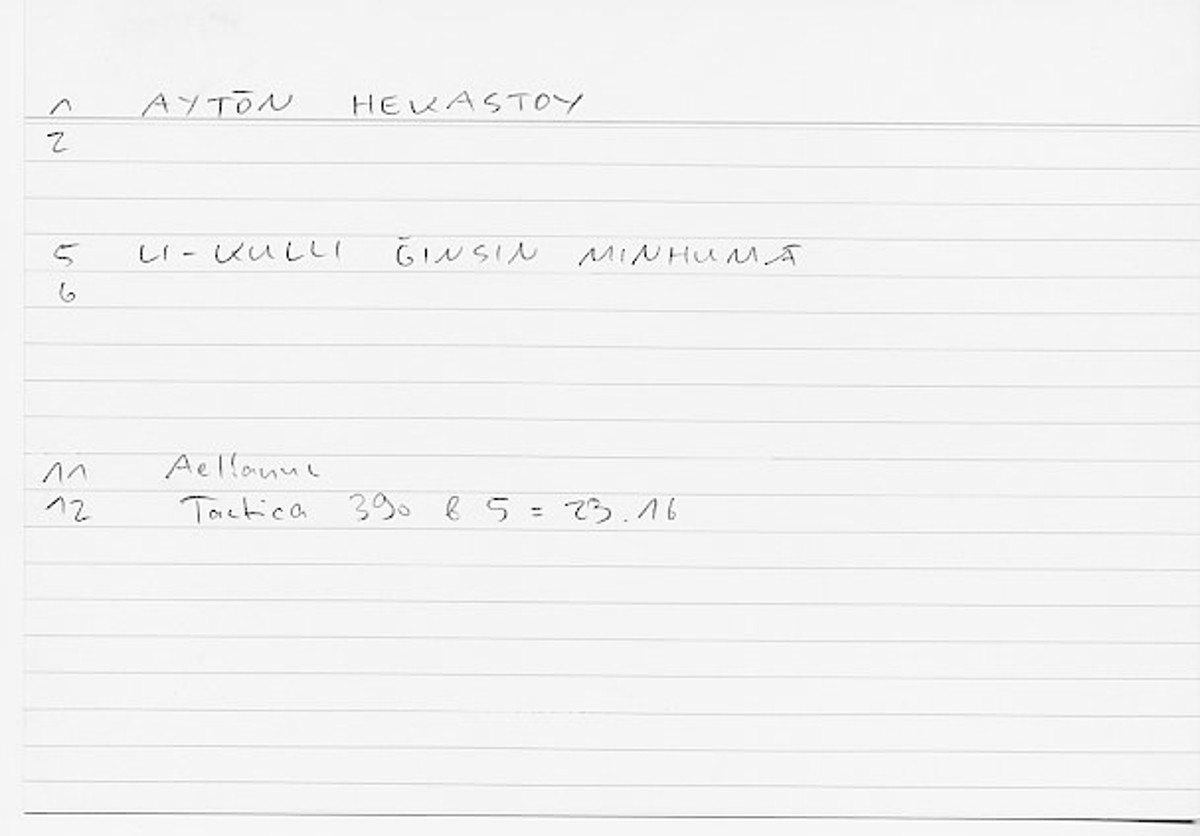 1 AYTŌN HEKASTOY
2
5 LI-KULLI ĞINSIN MINHUMĀ
6
11 Aelianus
12 Tactica 390 B 5 = 23.16